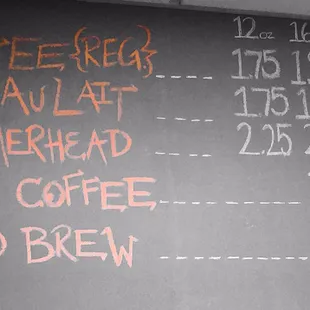 12 oz 16
TEE {REG} ---- 1.75 1
AU LAIT ---- 1.75 1
MERHEAD ---- 2.25 2
COFFEE
BREW